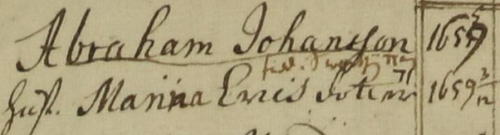 Abraham Johansson 1657
hust. Marina Erics dotter 1659 3/12